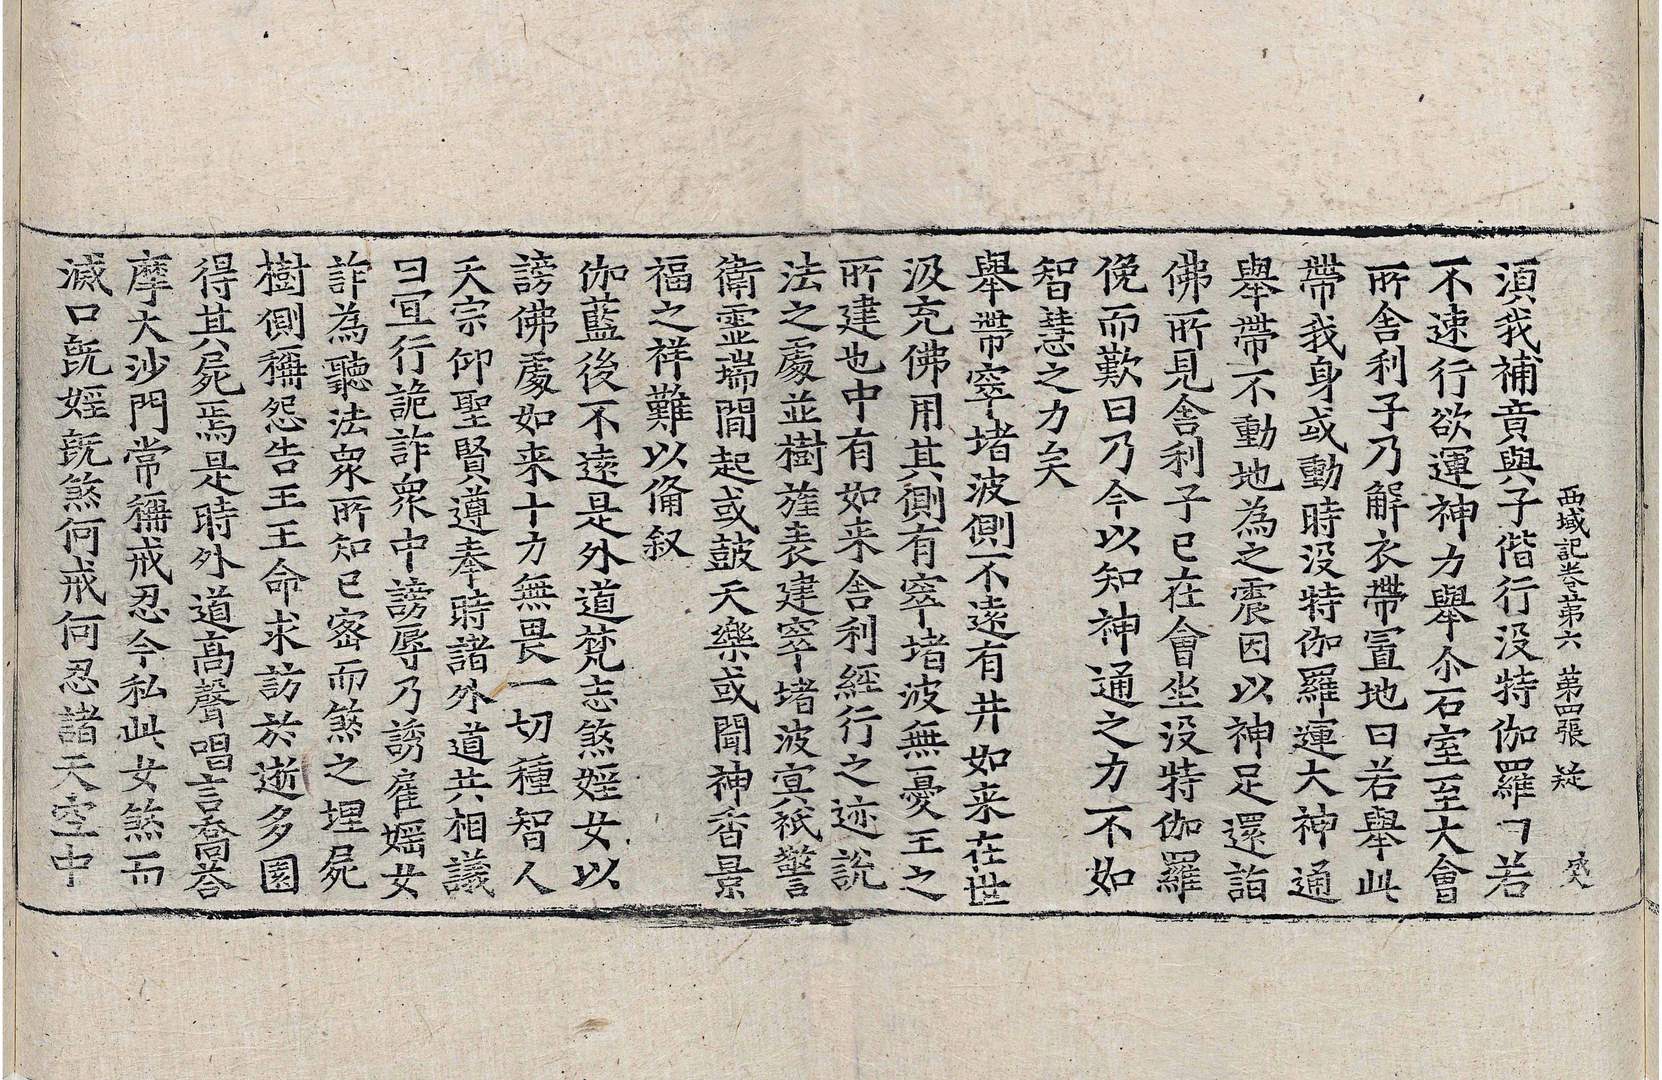 西域記卷第六 第四張 㝵
湏我補竟與子偕行没特伽羅曰若
不速行欲運神力舉尒石室至大會
所舍利子乃解衣帶置地曰若舉此
帶我身或動時没特伽羅運大神通
舉帶不動地為之震因以神足還詣
佛所見舍利子已在會坐没特伽羅
俛而歎曰乃今以知神通之力不如
智慧之力矣
舉帶窣堵波側不遠有井如来在世
汲充佛用其側有窣堵波無憂王之
所建也中有如来舍利經行之迹說
法之處並樹旌表建窣堵波冥祇警
衛靈瑞間起或鼓天樂或聞神香景
福之祥難以備叙
伽藍後不遠是外道梵志煞婬女以
謗佛處如来十力無畏一切種智人
天宗仰聖賢遵奉時諸外道共相議
曰宜行詭詐衆中謗辱乃誘雇婬女
詐為聽法衆所知已密而煞之埋屍
樹側稱怨告王王命求訪於逝多園
得其屍焉是時外道高聲唱言喬荅
摩大沙門常稱戒忍今私此女煞而
滅口旣婬旣煞何戒何忍諸天空中